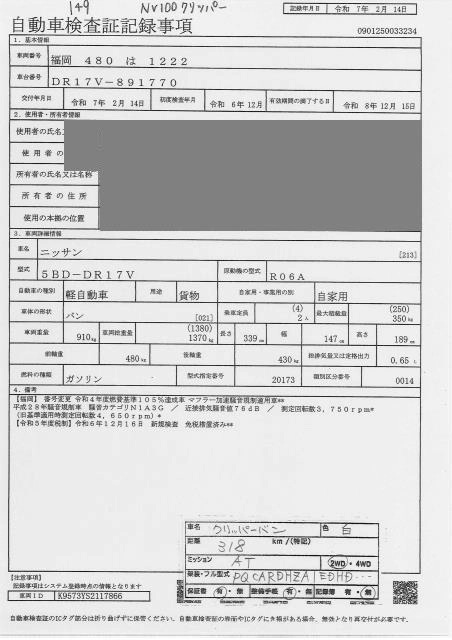 149 NV100クリッパー
記録年月日 令和 7年 2月 14日
自動車検査証記録事項
0901250033234
1. 基本情報
車両番号 福岡 480 は 1222
車台番号 DR17V-891770
交付年月日 令和 7年 2月 14日 初度検査年月 令和 6年12月 有効期間の満了する日 令和 8年12月 15日
2. 使用者・所有者情報
使用者の氏名又
使用者の
所有者の氏名又は名称
所有者の住所
使用の本拠の位置
3. 車両詳細情報
車名 ニッサン [213]
型式 5BD-DR17V 原動機の型式 R06A
自動車の種別 軽自動車 用途 貨物 自家用・事業用の別 自家用
車体の形状 バン [021] 乗車定員 (4) 2人 最大積載量 (250) 350kg
車両重量 910kg 車両総重量 (1380) 1370kg 長さ 339cm 幅 147cm 高さ 189cm
前軸重 480kg 後軸重 430kg 総排気量又は定格出力 0.65 L
燃料の種類 ガソリン 型式指定番号 20173 類別区分番号 0014
4. 備考
【福岡】 番号変更 令和4年度燃費基準105%達成車 マフラー加速騒音規制適用車**
平成28年騒音規制車 騒音カテゴリN1A3G / 近接排気騒音値76dB / 測定回転数3,750rpm*
(旧基準適用時測定回転数4,650rpm)*
【令和5年度税制】令和6年12月16日 新規検査 免税措置済み**
車名 クリッパーバン 色 白
距離 318 km/(特記)
ミッション AT 2WD・4WD
架装・フル型式 PQCARDHZA EDHD---
保証書 有・無 整備手帳 有・無 記録簿 有・無
【注意事項】
記録事項はシステム登録時点の情報となります
車両ID K9573YS2117866
自動車検査証のICタグ部分は折り曲げずに保管ください。自動車検査証の券面やICタグにき損がある場合、無効となり再交付が必要です。